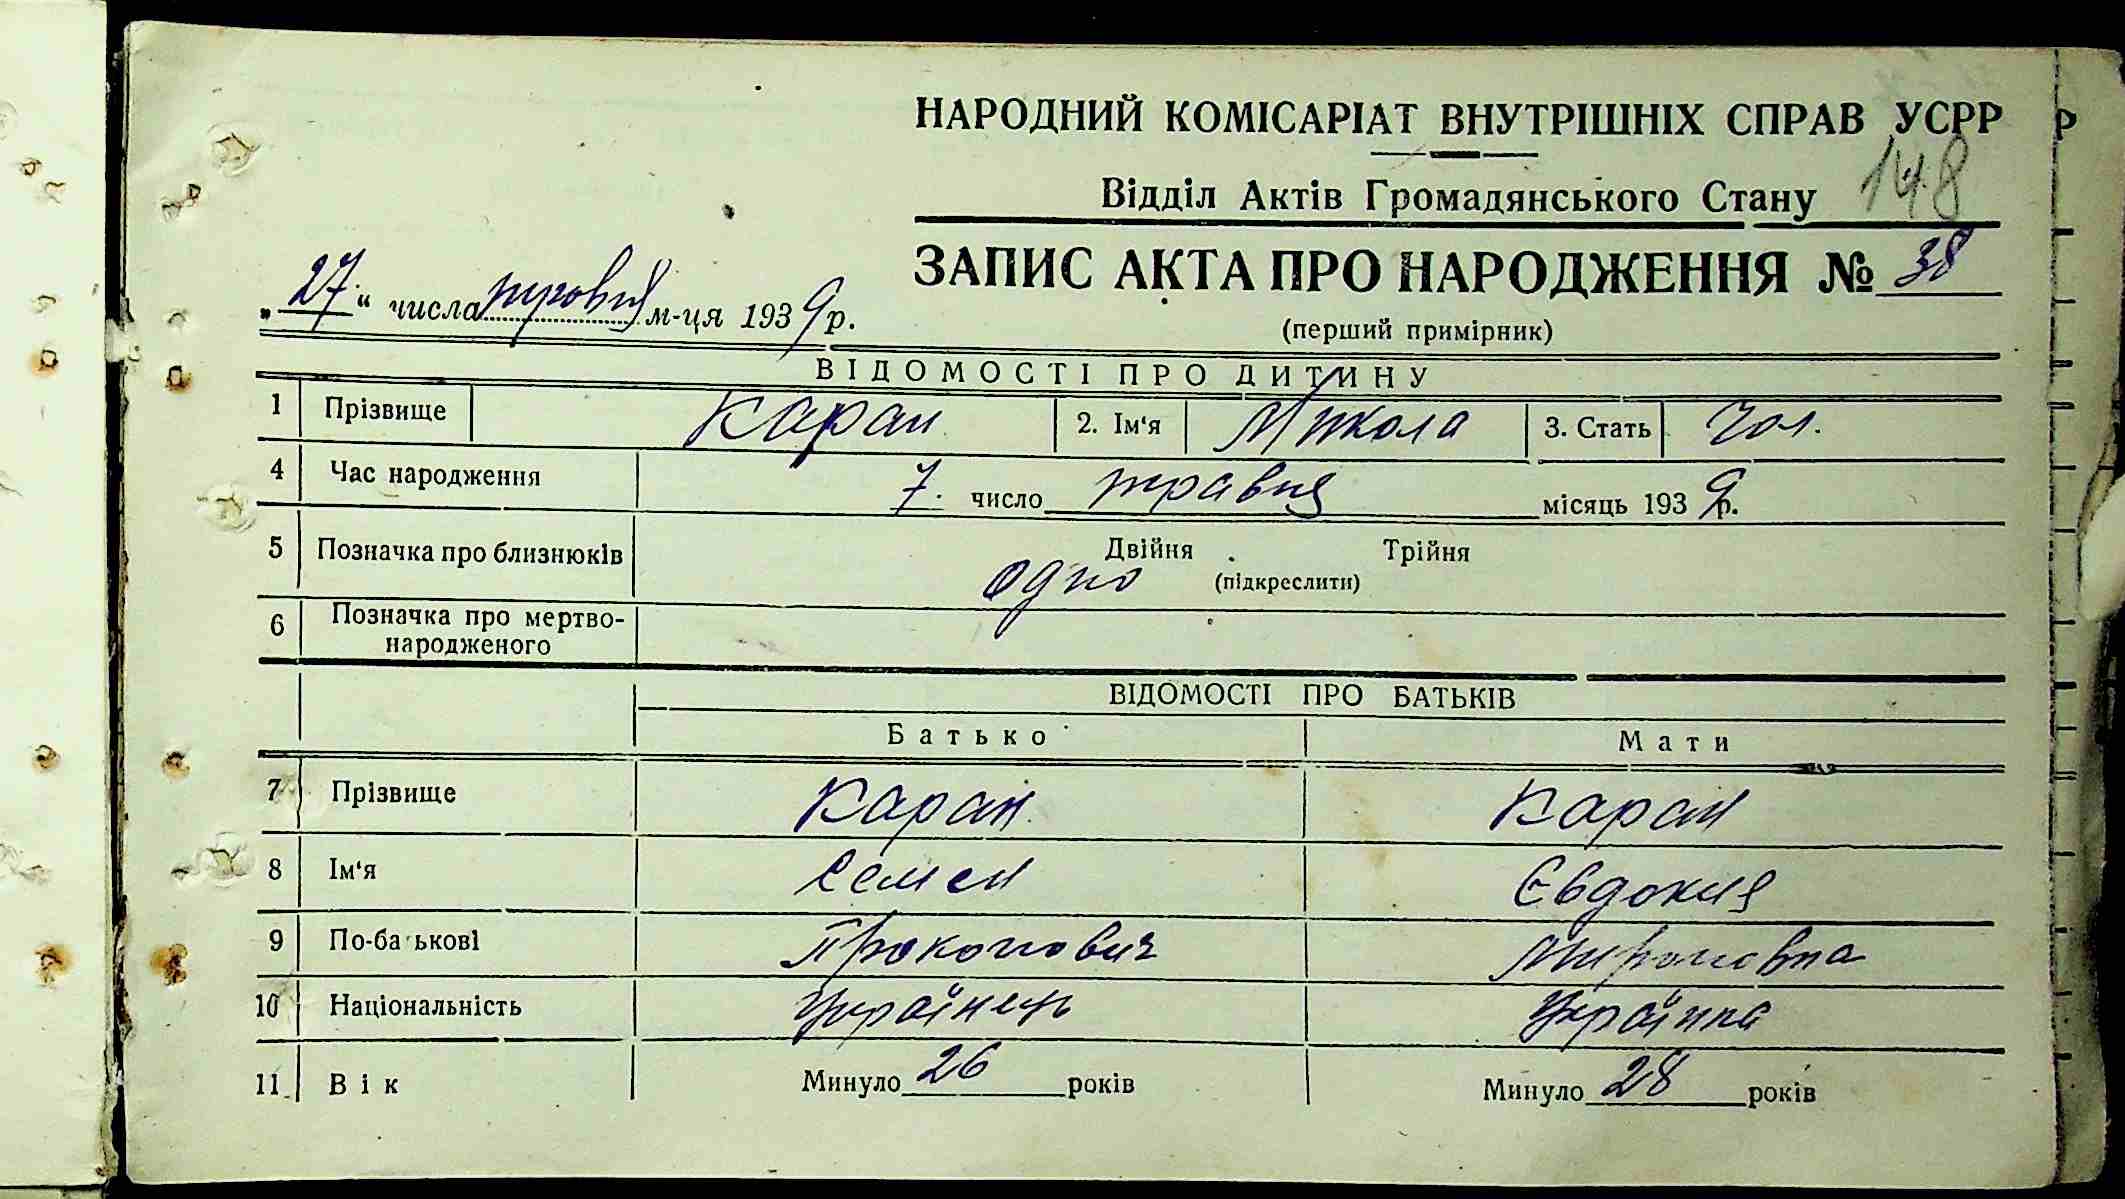 НАРОДНИЙ КОМІСАРІАТ ВНУТРІШНІХ СПРАВ УСРР
148
Відділ Актів Громадянського Стану
ЗАПИС АКТА ПРО НАРОДЖЕННЯ № 38
„27“ числа травня м-ця 1939 р.
(перший примірник)
ВІДОМОСТІ ПРО ДИТИНУ
1 Прізвище Каран 2. Ім'я Микола 3. Стать чол.
4 Час народження 7. число травня місяць 1939 р.
5 Позначка про близнюків Двійня Трійня
одно (підкреслити)
6 Позначка про мертво-
народженого
ВІДОМОСТІ ПРО БАТЬКІВ
Батько Мати
7 Прізвище Каран Каран
8 Ім'я Семен Євдокия
9 По-батькові Прокопович Мироновна
10 Національність Українець Українка
11 Вік Минуло 26 років Минуло 28 років